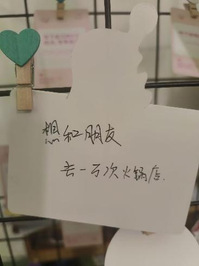 想和朋友
去一万次火锅店.